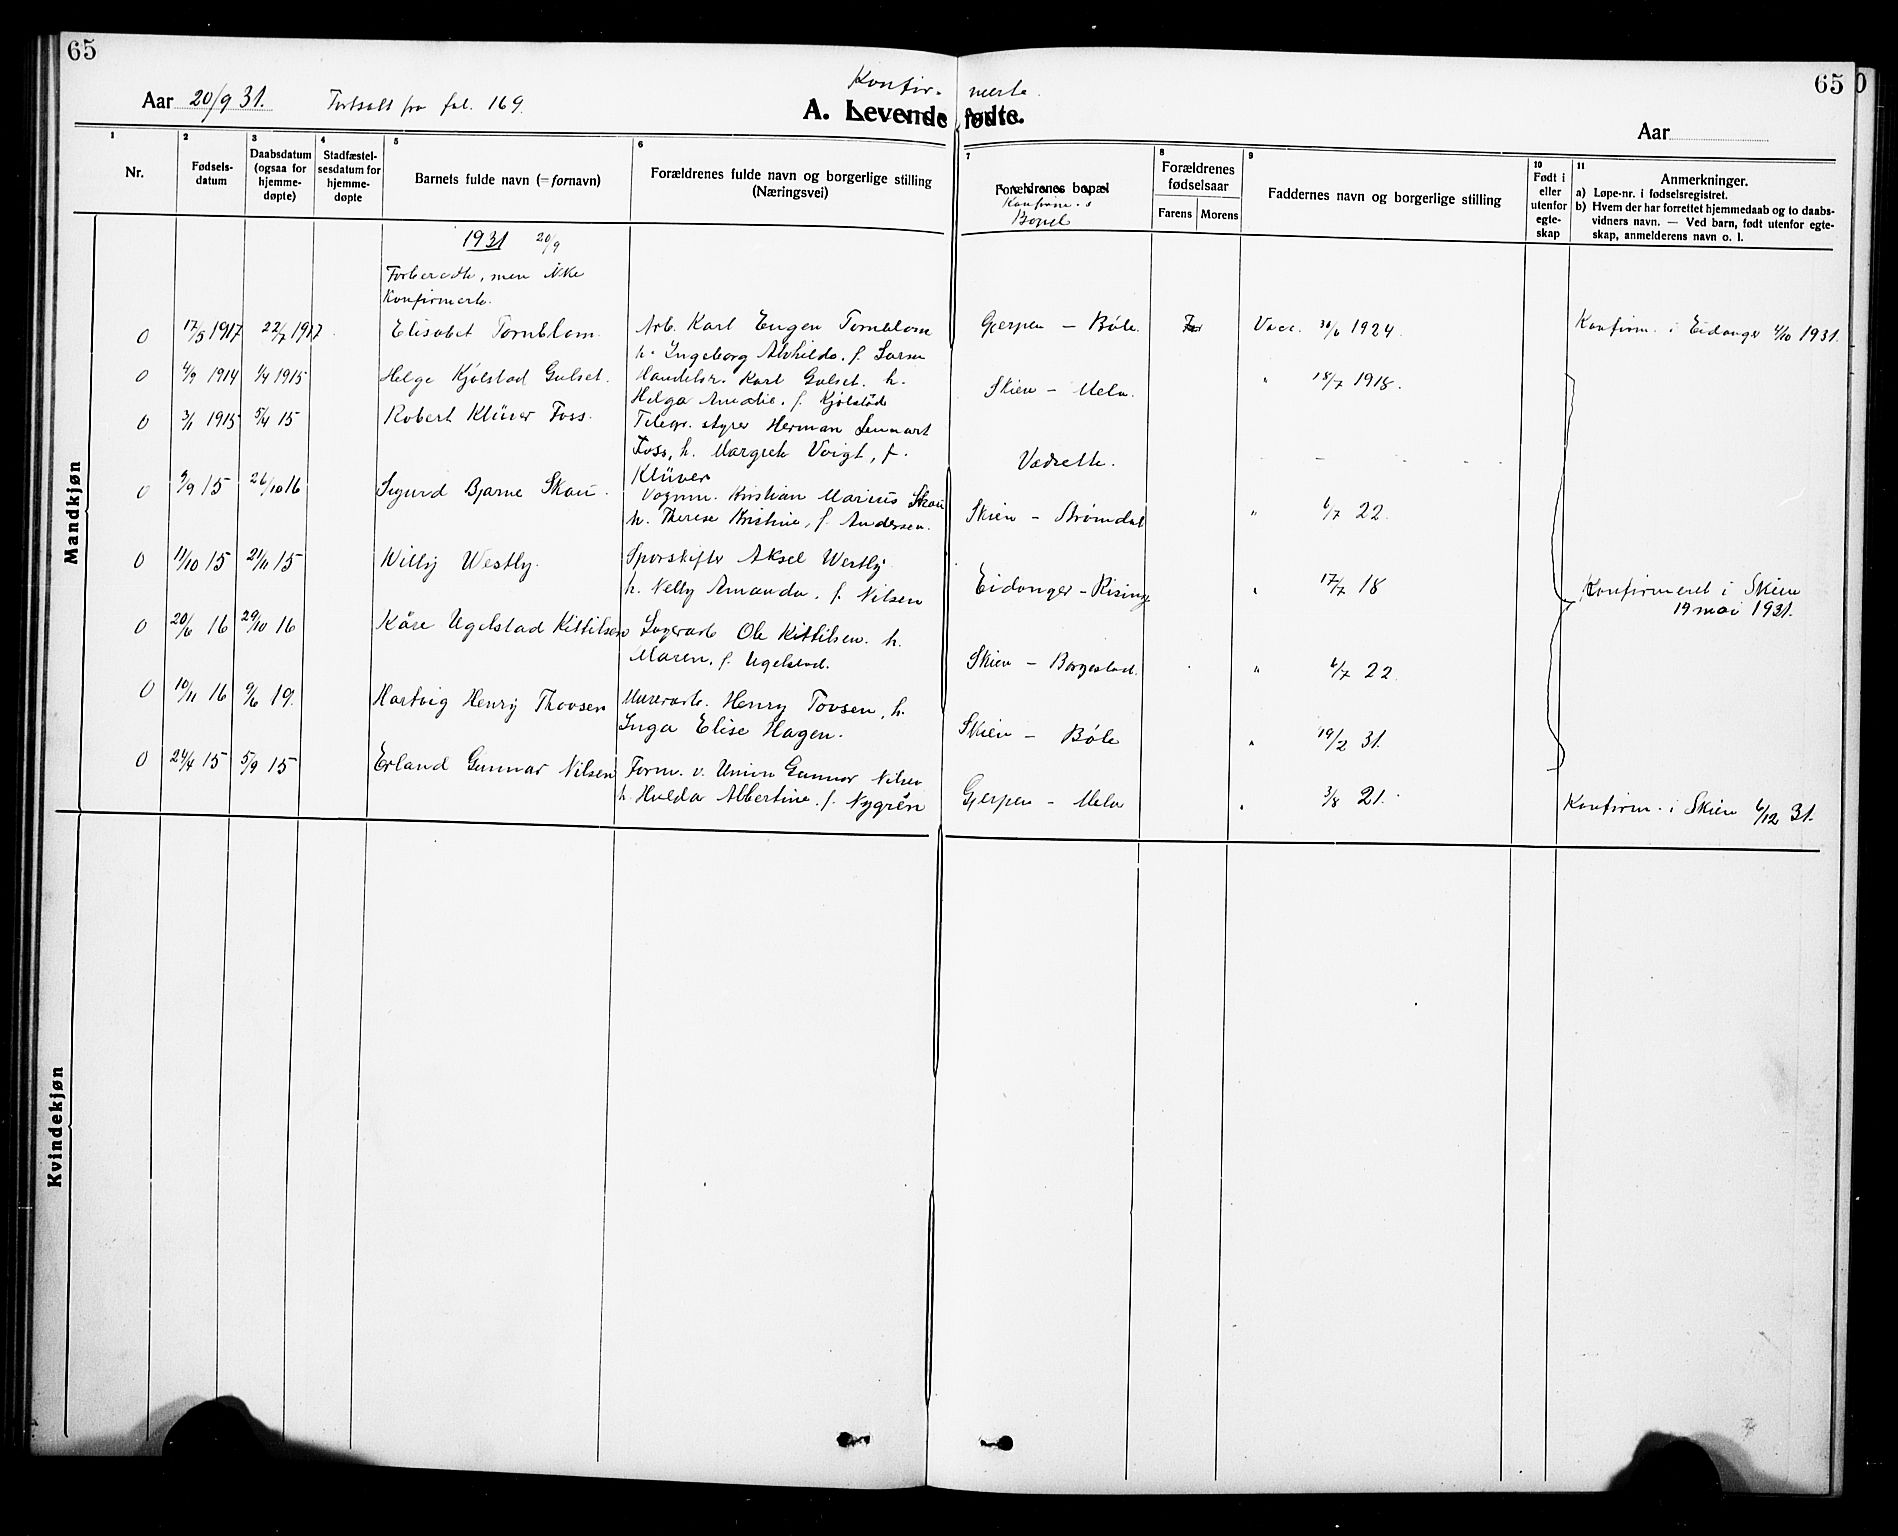 65
65
Konfir- merte.
Aar 20/9 31. Fortsatt fra fol. 169.
A. Levende fødte.
Aar
1 Nr.
2 Fødsels-datum
3 Daabsdatum (ogsaa for hjemme-døpte)
4 Stadfæstel-sesdatum for hjemme-døpte
5 Barnets fulde navn (= fornavn)
6 Forældrenes fulde navn og borgerlige stilling (Næringsvei)
7 Forældrenes bopæl
Bopel
8 Forældrenes fødselsaar
Farens Morens
9 Faddernes navn og borgerlige stilling
10 Født i eller utenfor egte-skap
11 Anmerkninger.
a) Løpe-nr. i fødselsregistret.
b) Hvem der har forrettet hjemmedaab og to daabs-
vidners navn. — Ved barn, født utenfor egte-
skap, anmelderens navn o. l.
Mandkjøn
1931 20/9
Forberedte, men ikke
Konfirmerte.
0 17/5 1917 22/7 1917 Elisabet Tornblom. Arb. Karl Eugen Tornblom Gjerpen – Bøle. Vacc. 30/6 1924. Konfirm. i Eidanger 4/10 1931.
h. Ingeborg Alvhilde. f. Larsen
0 4/9 1914 1/4 1915 Helge Kjølstad Gulset. Handelsr. Karl Gulset. h. Skien – Melu. " 18/7 1918.
Helga Amalie. f. Kjølstad
0 3/1 1915 5/4 15 Robert Klüver Foss. Telegr. styrer Herman Lennart
Foss, h. Margrete Voigt, f. Vadrette. –
Klüver
0 9/9 15 26/10 16 Sigurd Bjarne Skau. Vognm. Kristian Marius Skau Skien – Strømdal " 6/7 22.
h. Therese Kristine, f. Andersen.
0 11/10 15 21/11 15 Willy Westly. Sporskifter Aksel Westly Eidanger – Rising " 17/7 18 Konfirmeret i Skien
h. Nelly Amanda. f. Nilsen 19 mai 1931.
0 20/6 16 29/10 16 Kåre Ugelstad Kittilsen Lagerarb Ole Kittilsen. h. Skien – Borgestad. " 6/7 22.
Maren, f. Ugelstad.
0 10/11 16 9/6 19. Hartvig Henry Thovsen Murerarb. Henry Tovsen, h. Skien – Bøle " 19/2 31.
Inga Elise Hagen.
0 24/4 15 5/9 15 Erland Gunnar Nilsen Form. v. Union Gunnar Nilsen Gjerpen – Melu " 3/8 21. Konfirm. i Skien 6/12 31.
h. Hulda Albertine. f. Nygrén
Kvindekjøn